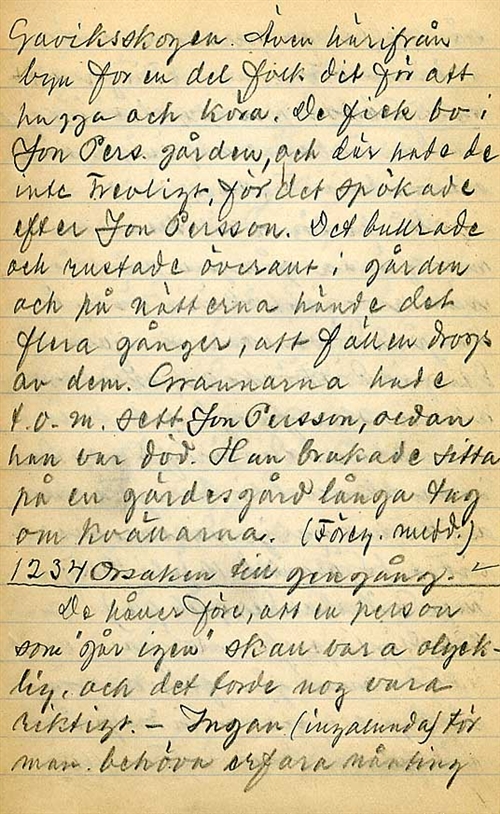 Gaviksskogen. Även härifrån
byn for en del folk dit för att
hugga och köra. De fick bo i
Jon Pers. gården, och där hade de
inte trevligt, för det spökade
efter Jon Persson. Det bullrade
och rustade överallt i gården
och på nätterna hände det
flera gånger, att fällen drogs
av dem. Grannarna hade
t.o.m. sett Jon Persson, sedan
han var död. Han brukade sitta
på en gärdesgård långa tag
om kvällarna. (Föreg. medd.)
1234 Orsaken till gengång.
De håller före, att en person
som "går igen" skall vara olyck-
lig, och det torde nog vara
riktigt. – Ingan (ingalunda) tör
man behöva erfara nånting